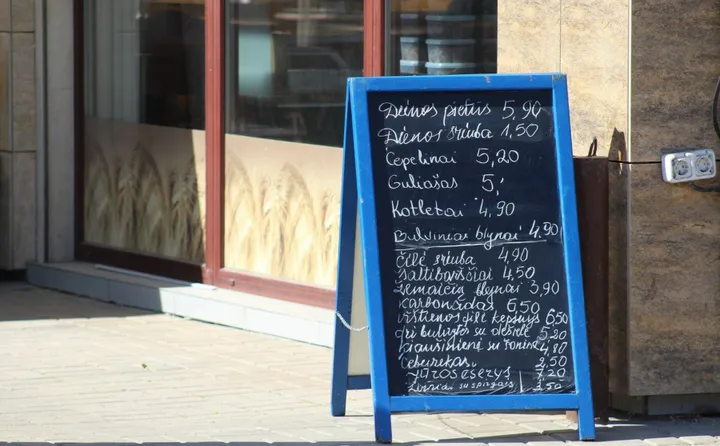 Dienos pietūs 5,90
Dienos sriuba 1,50
Cepelinai 5,20
Guliašas 5,
Kotletai 4,90
Bulviniai blynai 4,90
Čili sriuba 4,90
Šaltibarščiai 4,50
Žemaičių blynai 3,90
Karbonadas 6,50
Vištienos filė kepsnys 6,50
su dešrele 5,20
Kiaušinienė su 4,80
Čeburekas 2,50
7,20
su spirgais 3,50